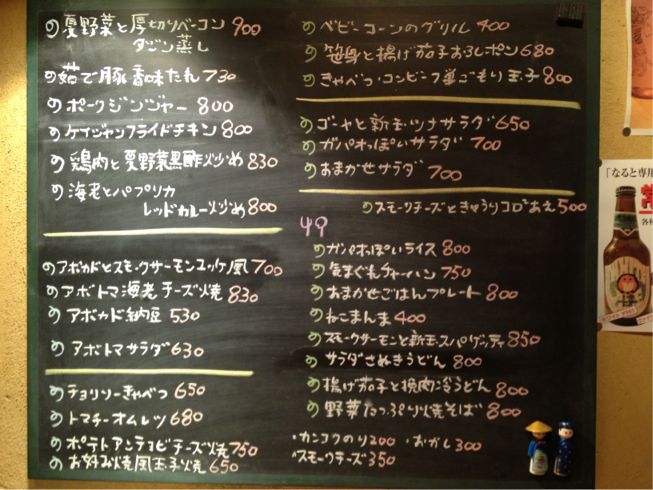 の 夏野菜と厚切りベーコン 900
タジン蒸し
の 茹で豚香味たれ 730
の ポークジンジャー 800
の ケイジャンフライドチキン 800
の 鶏肉と夏野菜黒酢炒め 830
の 海老とパプリカ
レッドカレー炒め 800
の アボカドとスモークサーモンユッケ風 700
の アボトマ海老チーズ焼 830
の アボカド納豆 530
の アボトマサラダ 630
の チョリソーきゃべつ 650
の トマチーオムレツ 680
の ポテトアンチョビチーズ焼 750
の お好み焼風玉子焼 650
の ベビーコーンのグリル 400
の 笹身と揚げ茄子おろしポン 680
の きゃべつ・コンビーフ巣ごもり玉子 800
の ゴーヤと新玉ツナサラダ 650
の ガパオっぽいサラダ 700
の おまかせサラダ 700
の スモークチーズときゅうりコロコロあえ 500
の ガパオっぽいライス 800
の 気まぐれチャーハン 750
の おまかせごはんプレート 800
の ねこまんま 400
の スモークサーモンと新玉スパゲッティ 850
の サラダさぬきうどん 800
の 揚げ茄子と挽肉冷うどん 800
の 野菜たっぷり焼そば 800
・カンコクのり 200 ・おかし 300
・スモークチーズ 350
「なると専用